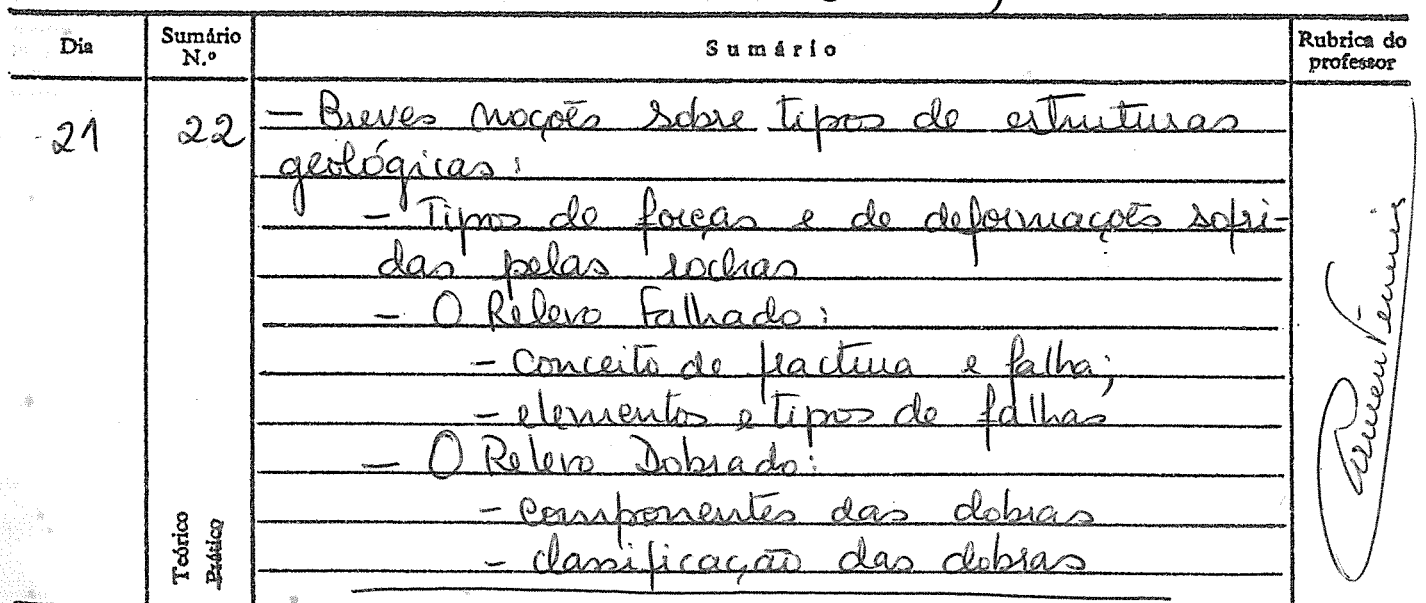 Dia Sumário N.º Sumário Rubrica do professor
21 22 - Breves noções sobre tipos de estruturas
geológicas:
- Tipos de forças e de deformações sofri-
das pelas rochas
- O Relevo Falhado:
- Conceito de fractura e falha;
- elementos e tipos de falhas
- O Relevo Dobrado:
- componentes das dobras
- classificação das dobras
Teórico
Prático